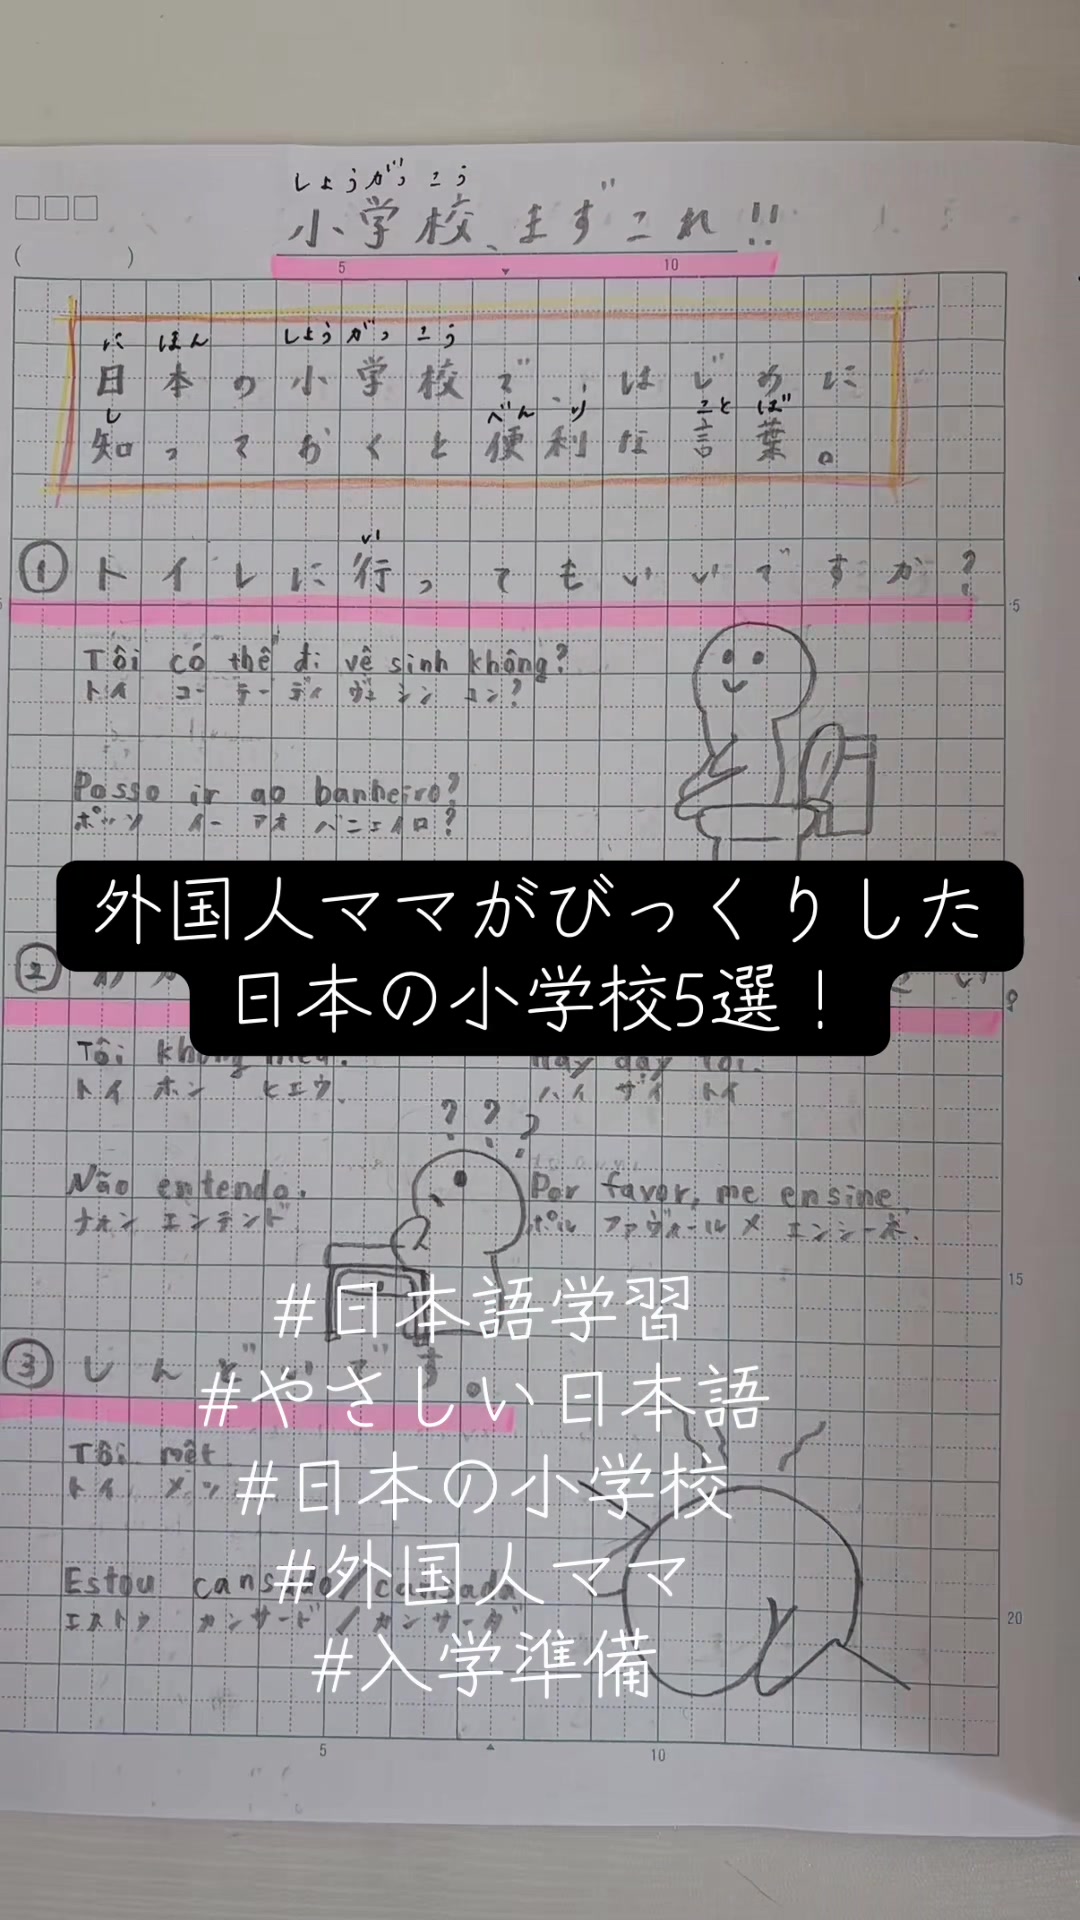 しょうがっこう
小学校、まずこれ!!
5 10
にほん しょうがっこう
日本の小学校で、はじめに
し べんり ことば
知っておくと便利な言葉。
い
① トイレに行ってもいいですか?
5
Tôi có thể đi vệ sinh không?
トイ コー テー ディ ヴェ シン コン?
Posso ir ao banheiro?
ポッソ イー アオ バニェイロ?
外国人ママがびっくりした
日本の小学校5選!
②
Tôi không
トイ ホン ヒエウ.
ハイ ザイ トイ
? ? ?
Não entendo.
ナォン エンテンド
Por favor, me ensine
ポル ファヴォール メ エンシーネ.
15
#日本語学習
③ しんどいです。
#やさしい日本語
Tôi mệt
トイ メッ
#日本の小学校
#外国人ママ
Estou cansado/cansada
エストゥ カンサード/カンサーダ
20
#入学準備
5 10